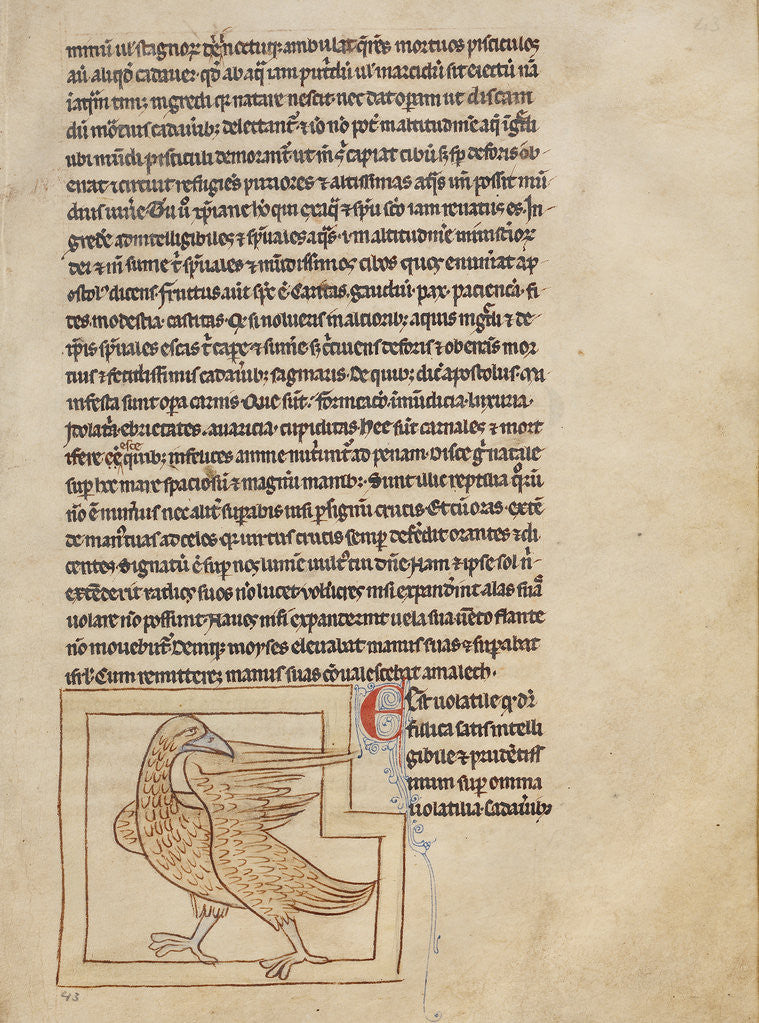 ambulat mortuos pisciculos
aū aliqđ cadauer qđ ab aq̄ iam ul marcidū sit eiectū nā
ingredi qr natare nescit nec dat opam ut discam
dū cadauibȝ delectant̄ ⁊ io no pot in altitudine aq̄
ubi mūdi pisciculi demorant̄ ut capiat cibū sꝫ sp deforis ob-
errat ⁊ circuit refugies puriores ⁊ altissimas possit mū
Tu ū xpiane ho qui ex aq̄ ⁊ spu sco iam renatus es. In-
grede ad intelligibiles ⁊ spuales aq̄s in altitudine
dei ⁊ sume spuales ⁊ mūdissimos cibos quos enumat ap-
ostol dicens. Fructus aut spc ē. Caritas. gaudiū. pax. paciencia. fi-
des. modestia. castitas. Qr si nolueris in alciorib; aquis ⁊ de
spuales escas cape ⁊ deforis ⁊ mor
tuis ⁊ fetidissimis cadauib; saginaris. De quib; dic apostolus. Ma
nifesta sunt opa carnis. Que sūt. fornicacio. īmūdicia. luxuria.
Idolatria. ebrietates. auaricia. cupiditas. Hee sūt carnales ⁊ mort
ifere esce quib; infelices anime nutriunt̄ ad penam. Disce natale
sup hoc mare spaciosū ⁊ magnū manib;. Sunt illic reptilia quorū
no ē numus nec alit supabis nisi p signum crucis. Et cū oras. extē
de manus tuas ad celos. qr uirtus crucis semper defēdit orantes ⁊ di
centes. Signatū ē sup nos lumē uultus tui dne. Nam ⁊ ipse sol n
extēderit radios suos no lucet uolucres nisi expandint alas suas
uolare no possunt. Naues nisi expanderint uela sua uēto flante
no mouebūt̄. Deniq; moyses eleuabat manus suas ⁊ supabat
isrl. Cum remitteret manus suas cōualescebat amalech.
Est uolatile q dr
fulica satis intelli
gibile ⁊ prudētiss
imum sup omnia
uolatilia. Cadauib;
43